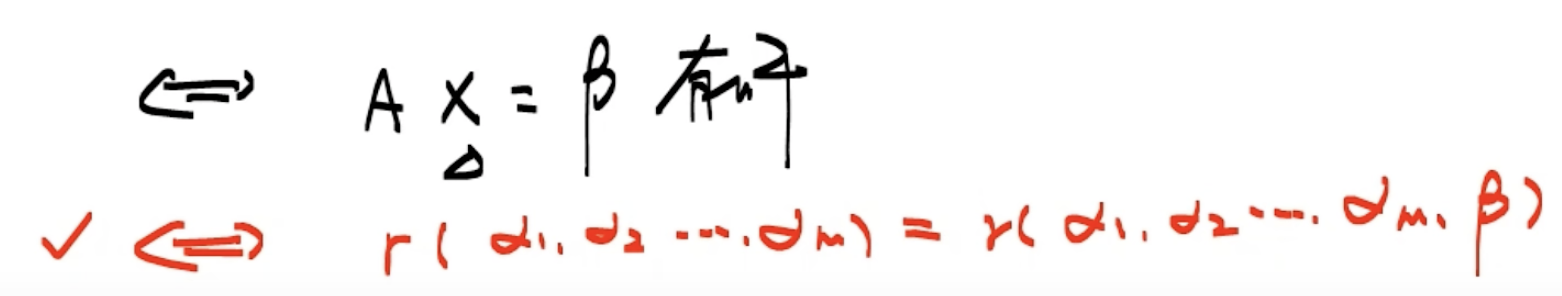 ⟺ A X = β 有解
△
✓ ⟺ r( α1, α2 ...., αm) = r( α1, α2 ...., αm, β)